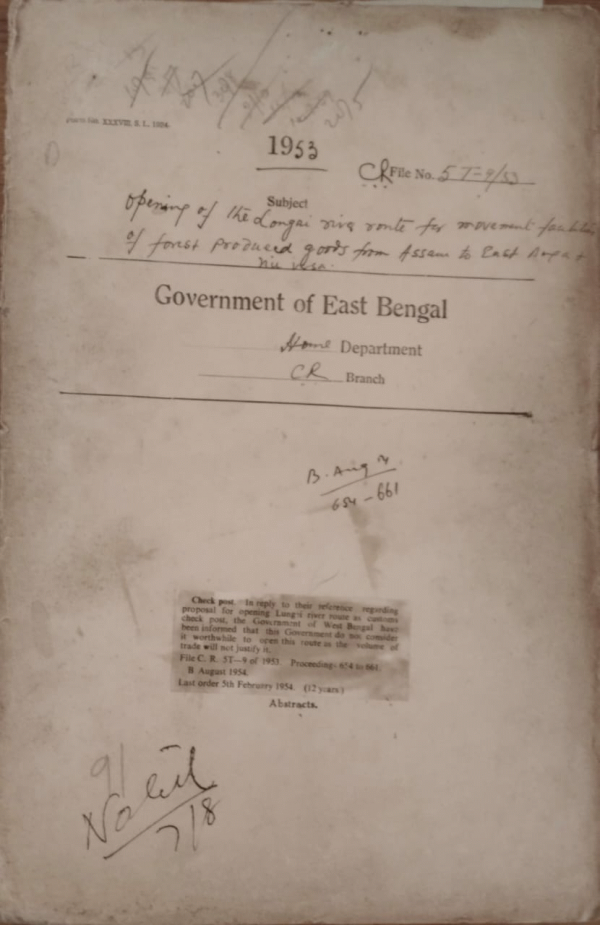 XXXVIII, S. L., 1924.
1953
CR File No. 5T-9/53
Subject
Opening of the Longai river route for movement facilities
of forest produced goods from Assam to East
vice versa.
Government of East Bengal
Home Department
CR Branch
B. Aug
654-661
Check post. In reply to their reference regarding
proposal for opening Lungai river route as customs
check post, the Government of West Bengal have
been informed that this Government do not consider
it worthwhile to open this route as the volume of
trade will not justify it.
File C. R. 5T—9 of 1953. Proceeding- 654 to 661.
B August 1954.
Last order 5th February 1954. (12 years)
Abstracts.
7/8